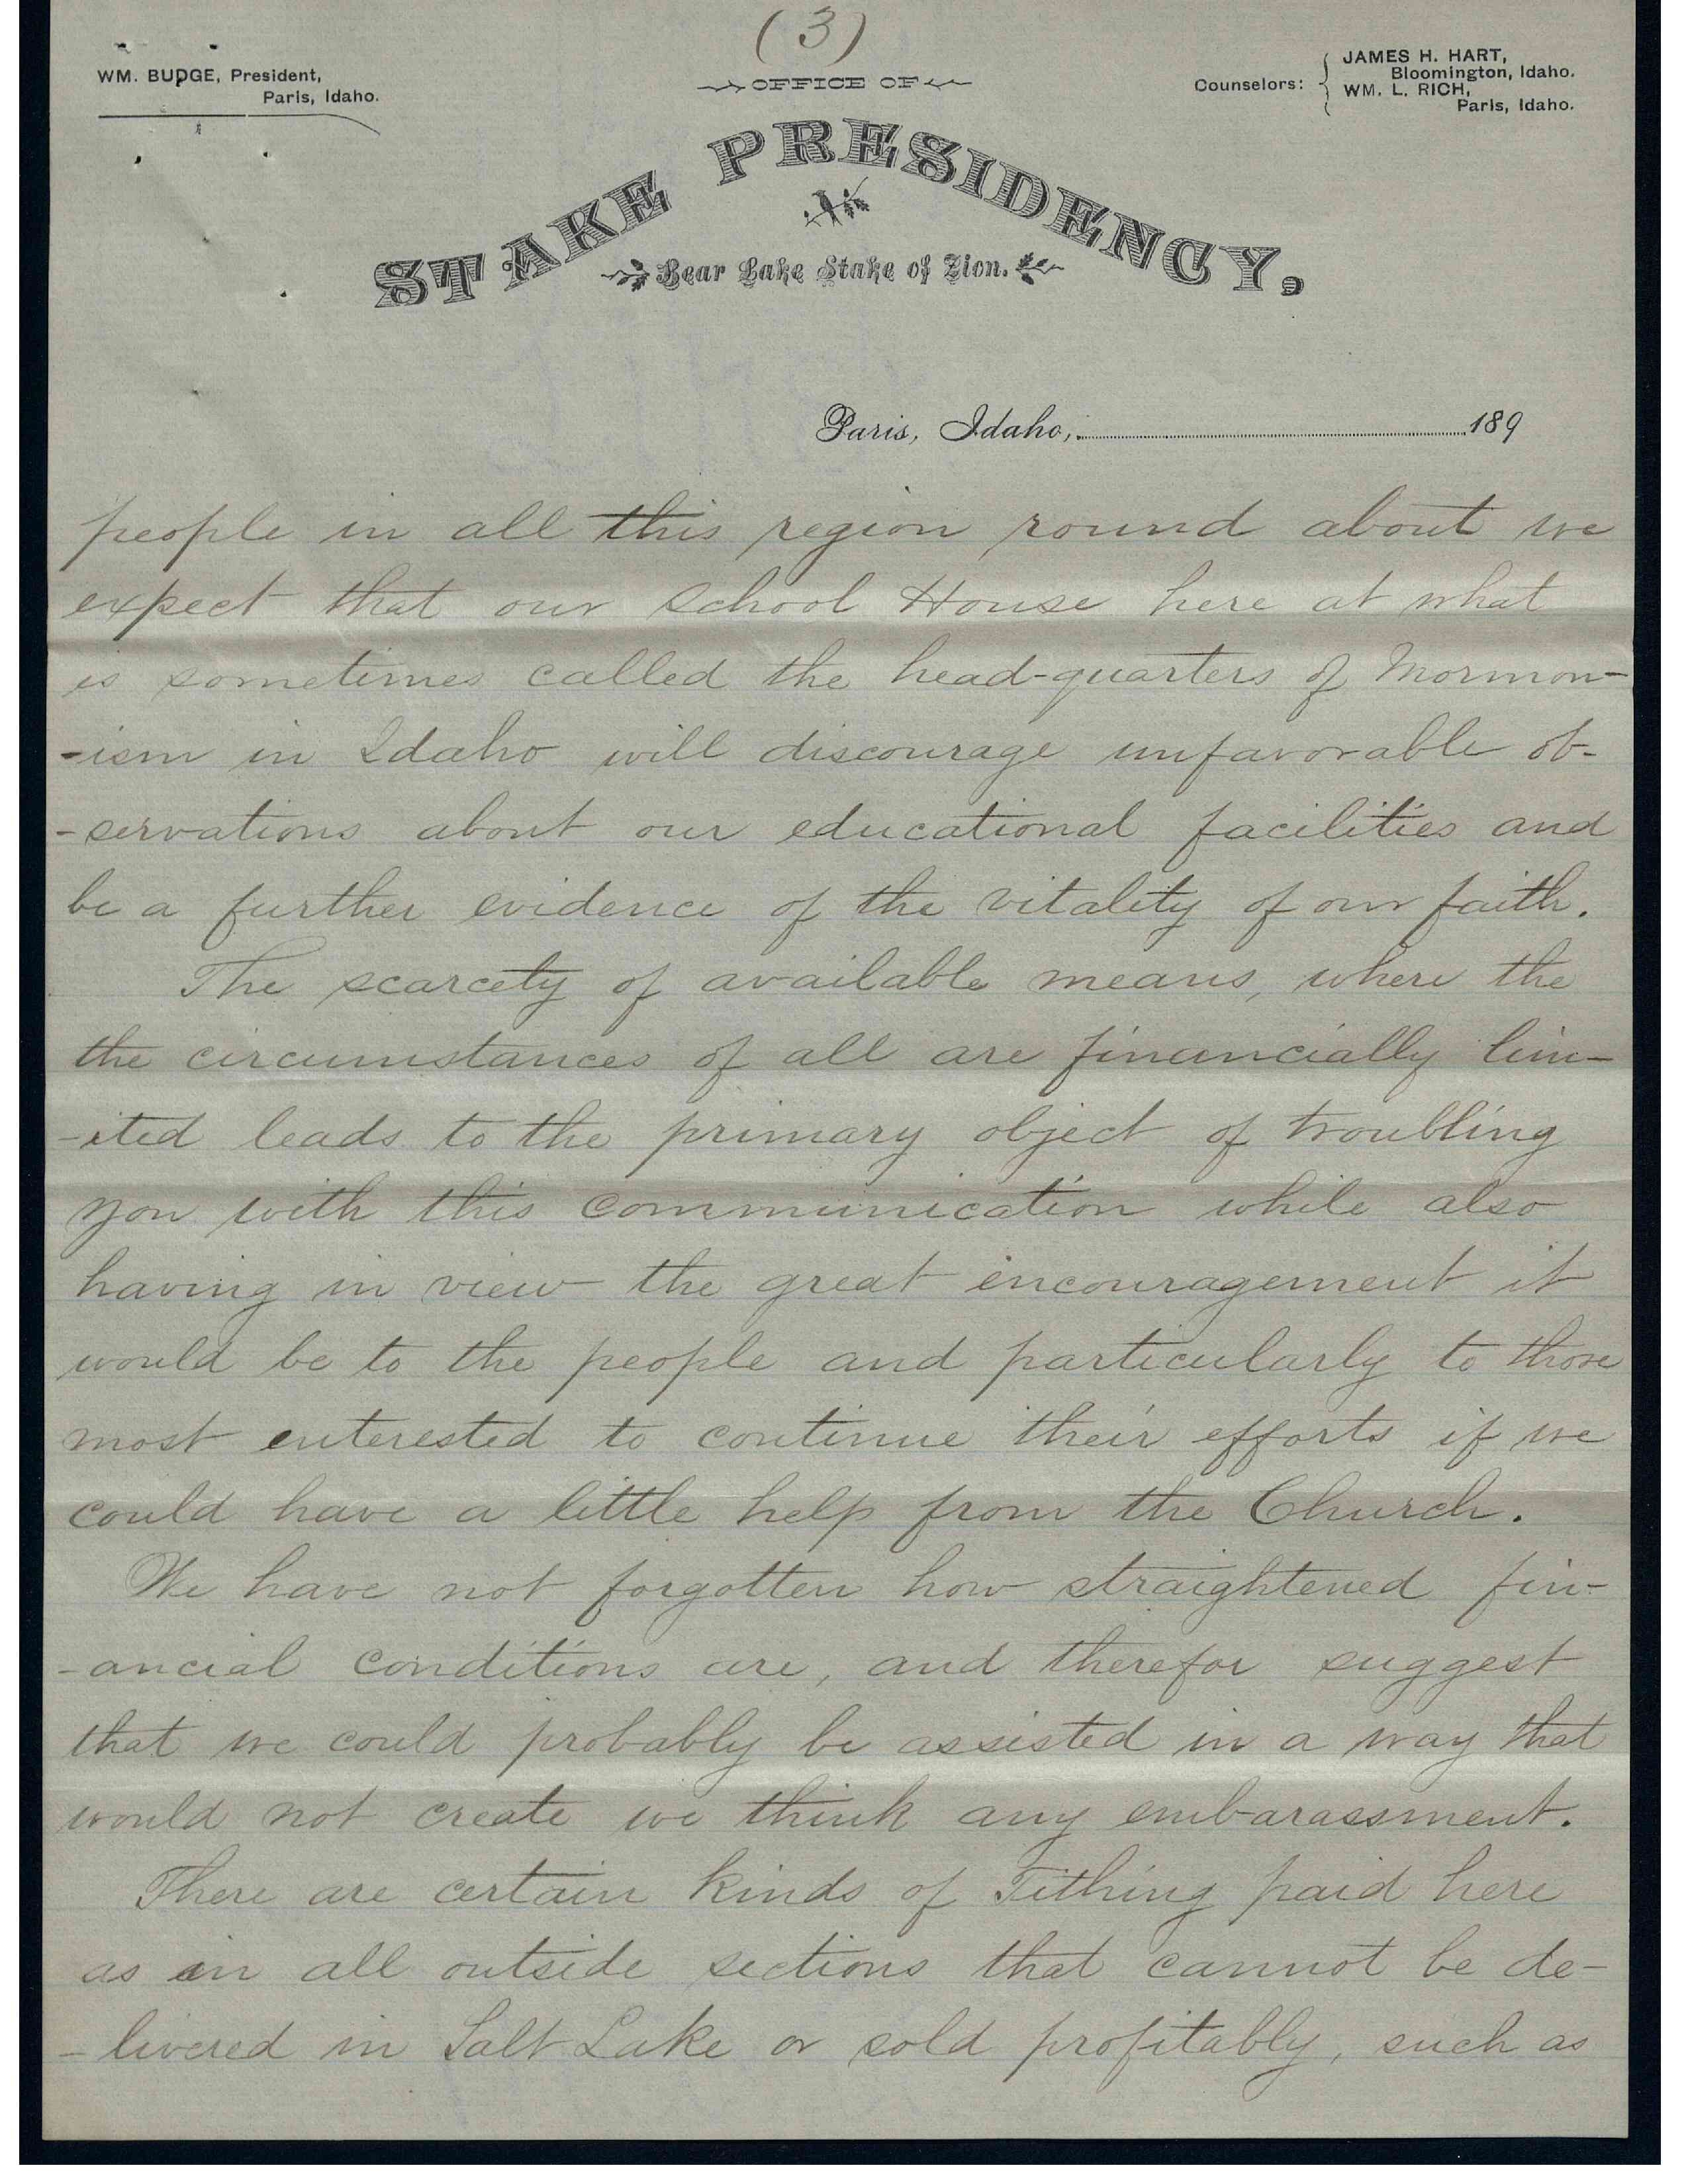 (3)
WM. BUDGE, President,
Paris, Idaho.
OFFICE OF
Counselors:
JAMES H. HART,
Bloomington, Idaho.
WM. L. RICH,
Paris, Idaho.
STAKE PRESIDENCY,
Bear Lake Stake of Zion.
Paris, Idaho, 189
people in all this region round about we
expect that our School House here at what
is sometimes called the head-quarters of Mormon-
-ism in Idaho will discourage unfavorable ob-
-servations about our educational facilities and
be a further evidence of the vitality of our faith.
The scarcety of available means, where the
the circumstances of all are financially lim-
-ited leads to the primary object of troubling
you with this communication while also
having in view the great encouragement it
would be to the people and particularly to those
most enterested to continue their efforts if we
could have a little help from the Church.
We have not forgotten how straightened fin-
-ancial conditions are, and therefor suggest
that we could probably be assisted in a way that
would not create we think any embarassment.
There are certain kinds of Tithing paid here
as in all outside sections that cannot be de-
-livered in Salt Lake or sold profitably, such as